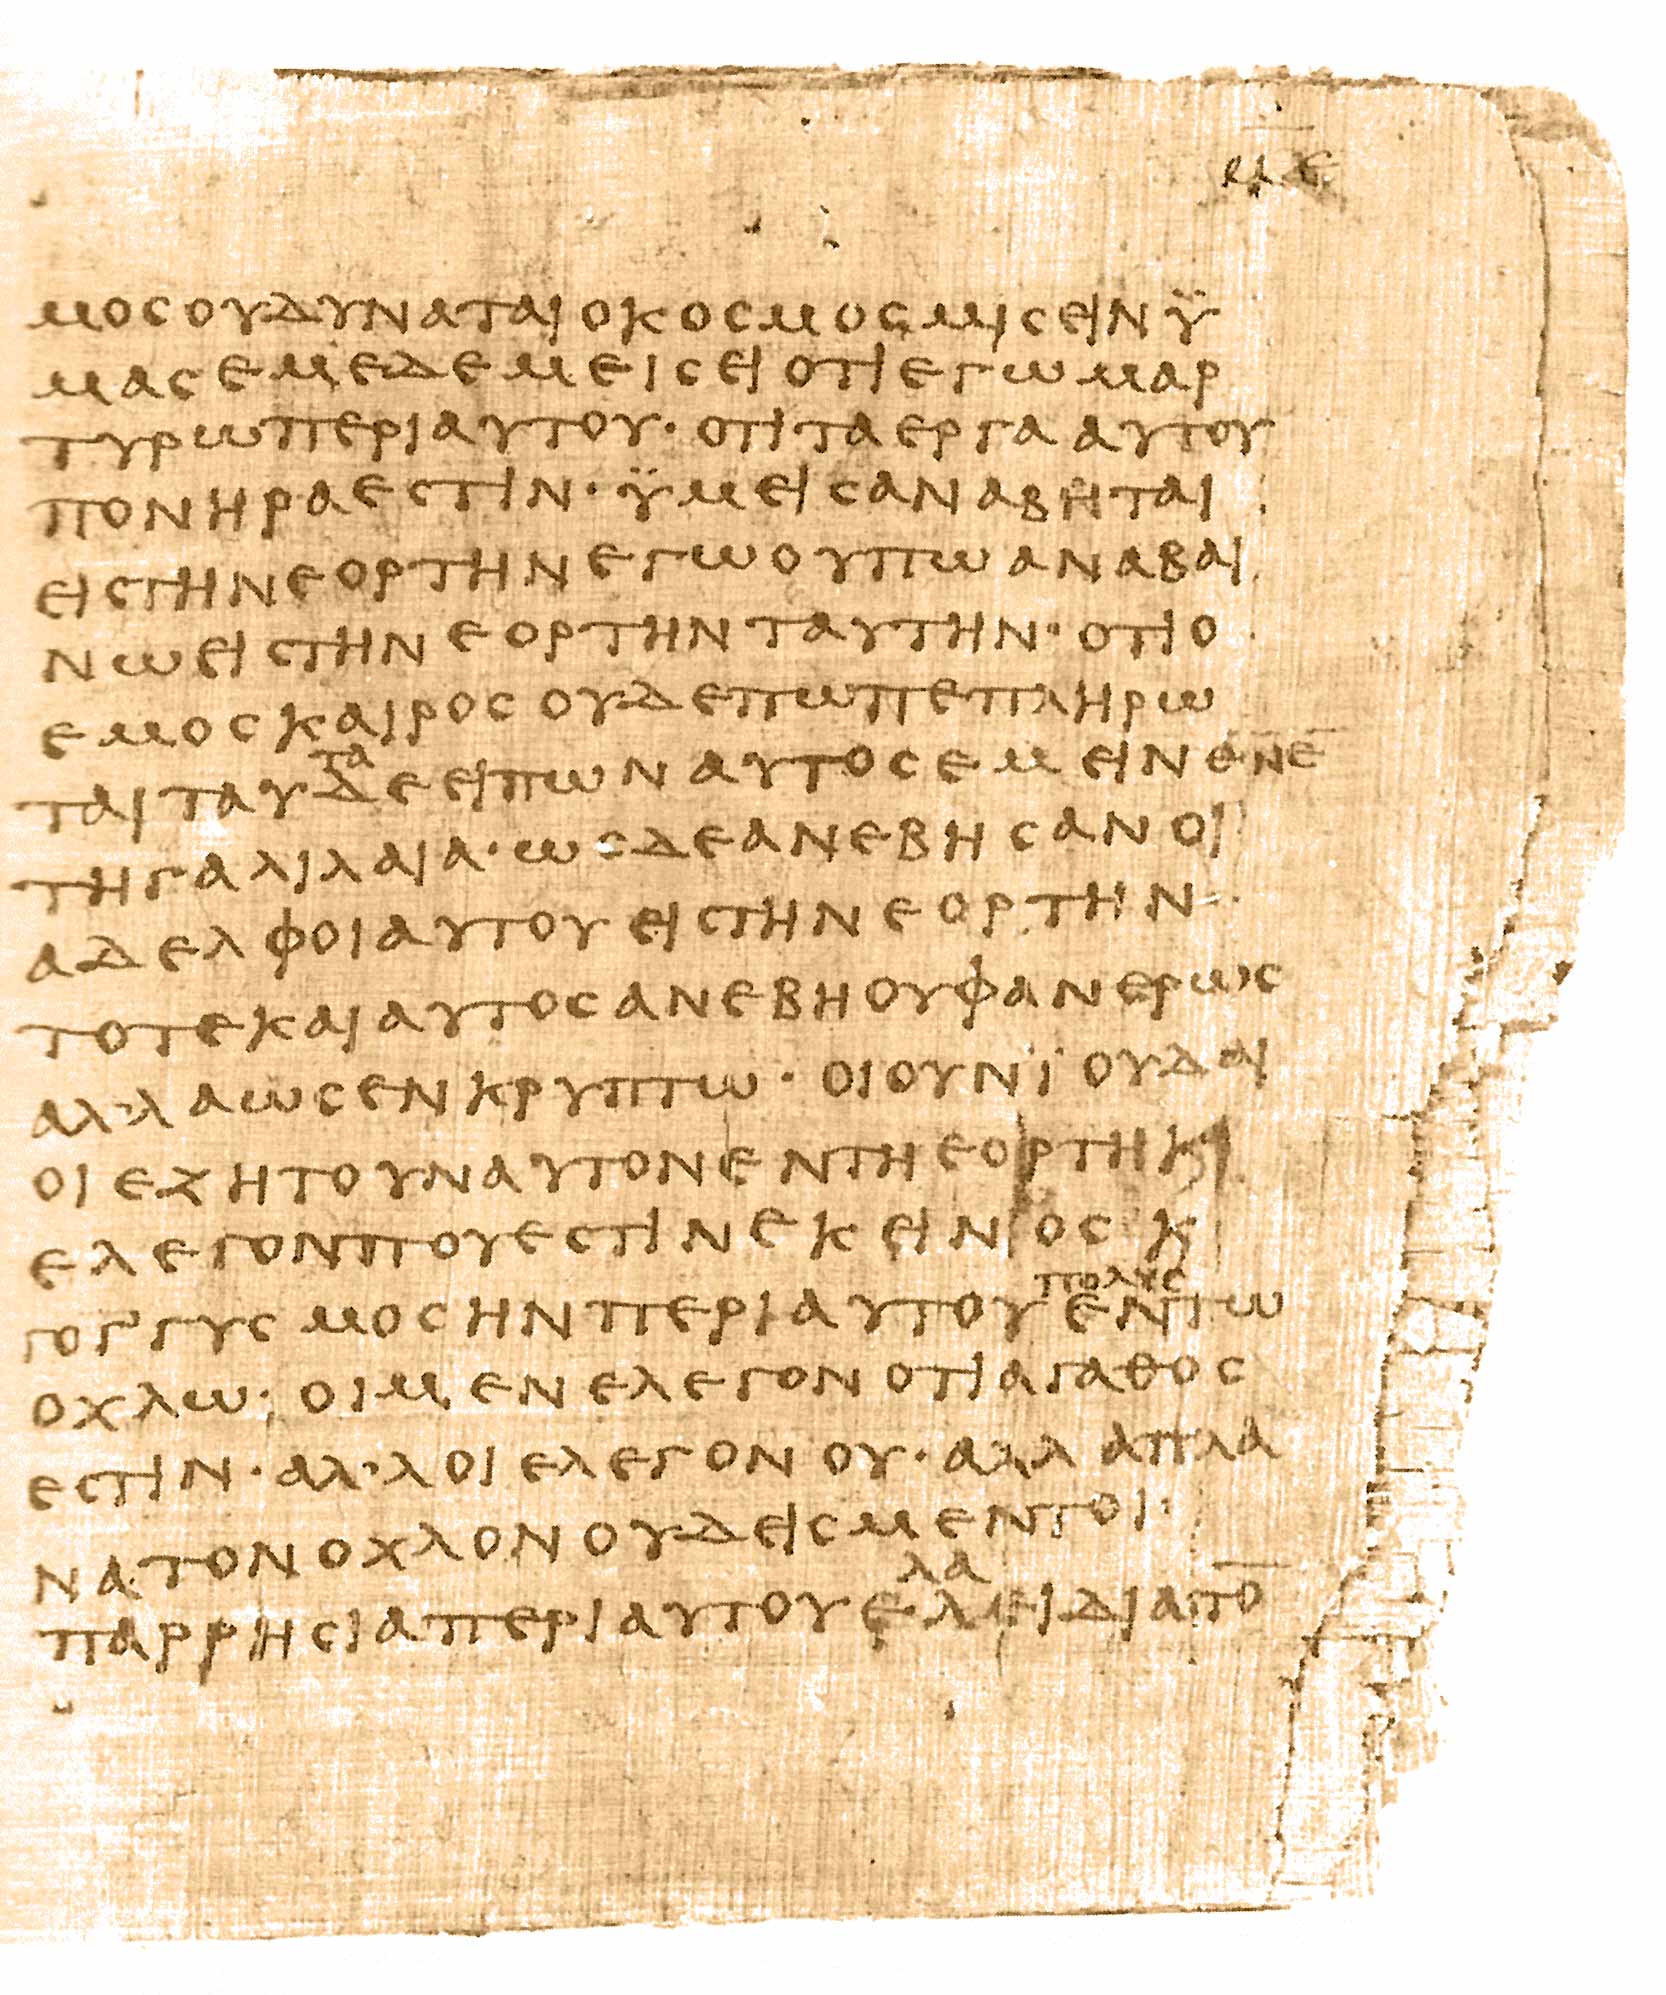 μοσουδυναταιοκοσμοσμισεινϋ
μασεμεδεμεισειοτιεγωμαρ
τυρωπεριαυτου·οτιταεργααυτου
πονηραεστιν·ϋμεισαναβηται
ειστηνεορτηνεγωουπωαναβαι
νωειστηνεορτηνταυτην·οτιο
εμοσκαιροσουδεπωπεπληρω
ταιταυ`τα´δεειπωναυτοσεμεινενε
τηγαλιλαια·ωσδεανεβησανοι
αδελφοιαυτουειστηνεορτην·
τοτεκαιαυτοσανεβηουφανερωσ
αλ᾽λαωσενκρυπτω·οιουνϊουδαι
οιεζητουναυτονεντηεορτηκι
ελεγονπουεστινεκεινοσκ
γογ᾽γυσμοσηνπεριαυτου`πολυσ´εντω
οχλω·οιμενελεγονοτιαγαθοσ
εστιν·αλ᾽λοιελεγονου·αλλαπλα
νατονοχλονουδεισμεντοι
παρρησιαπεριαυτουε`λα´λειδιατο̅